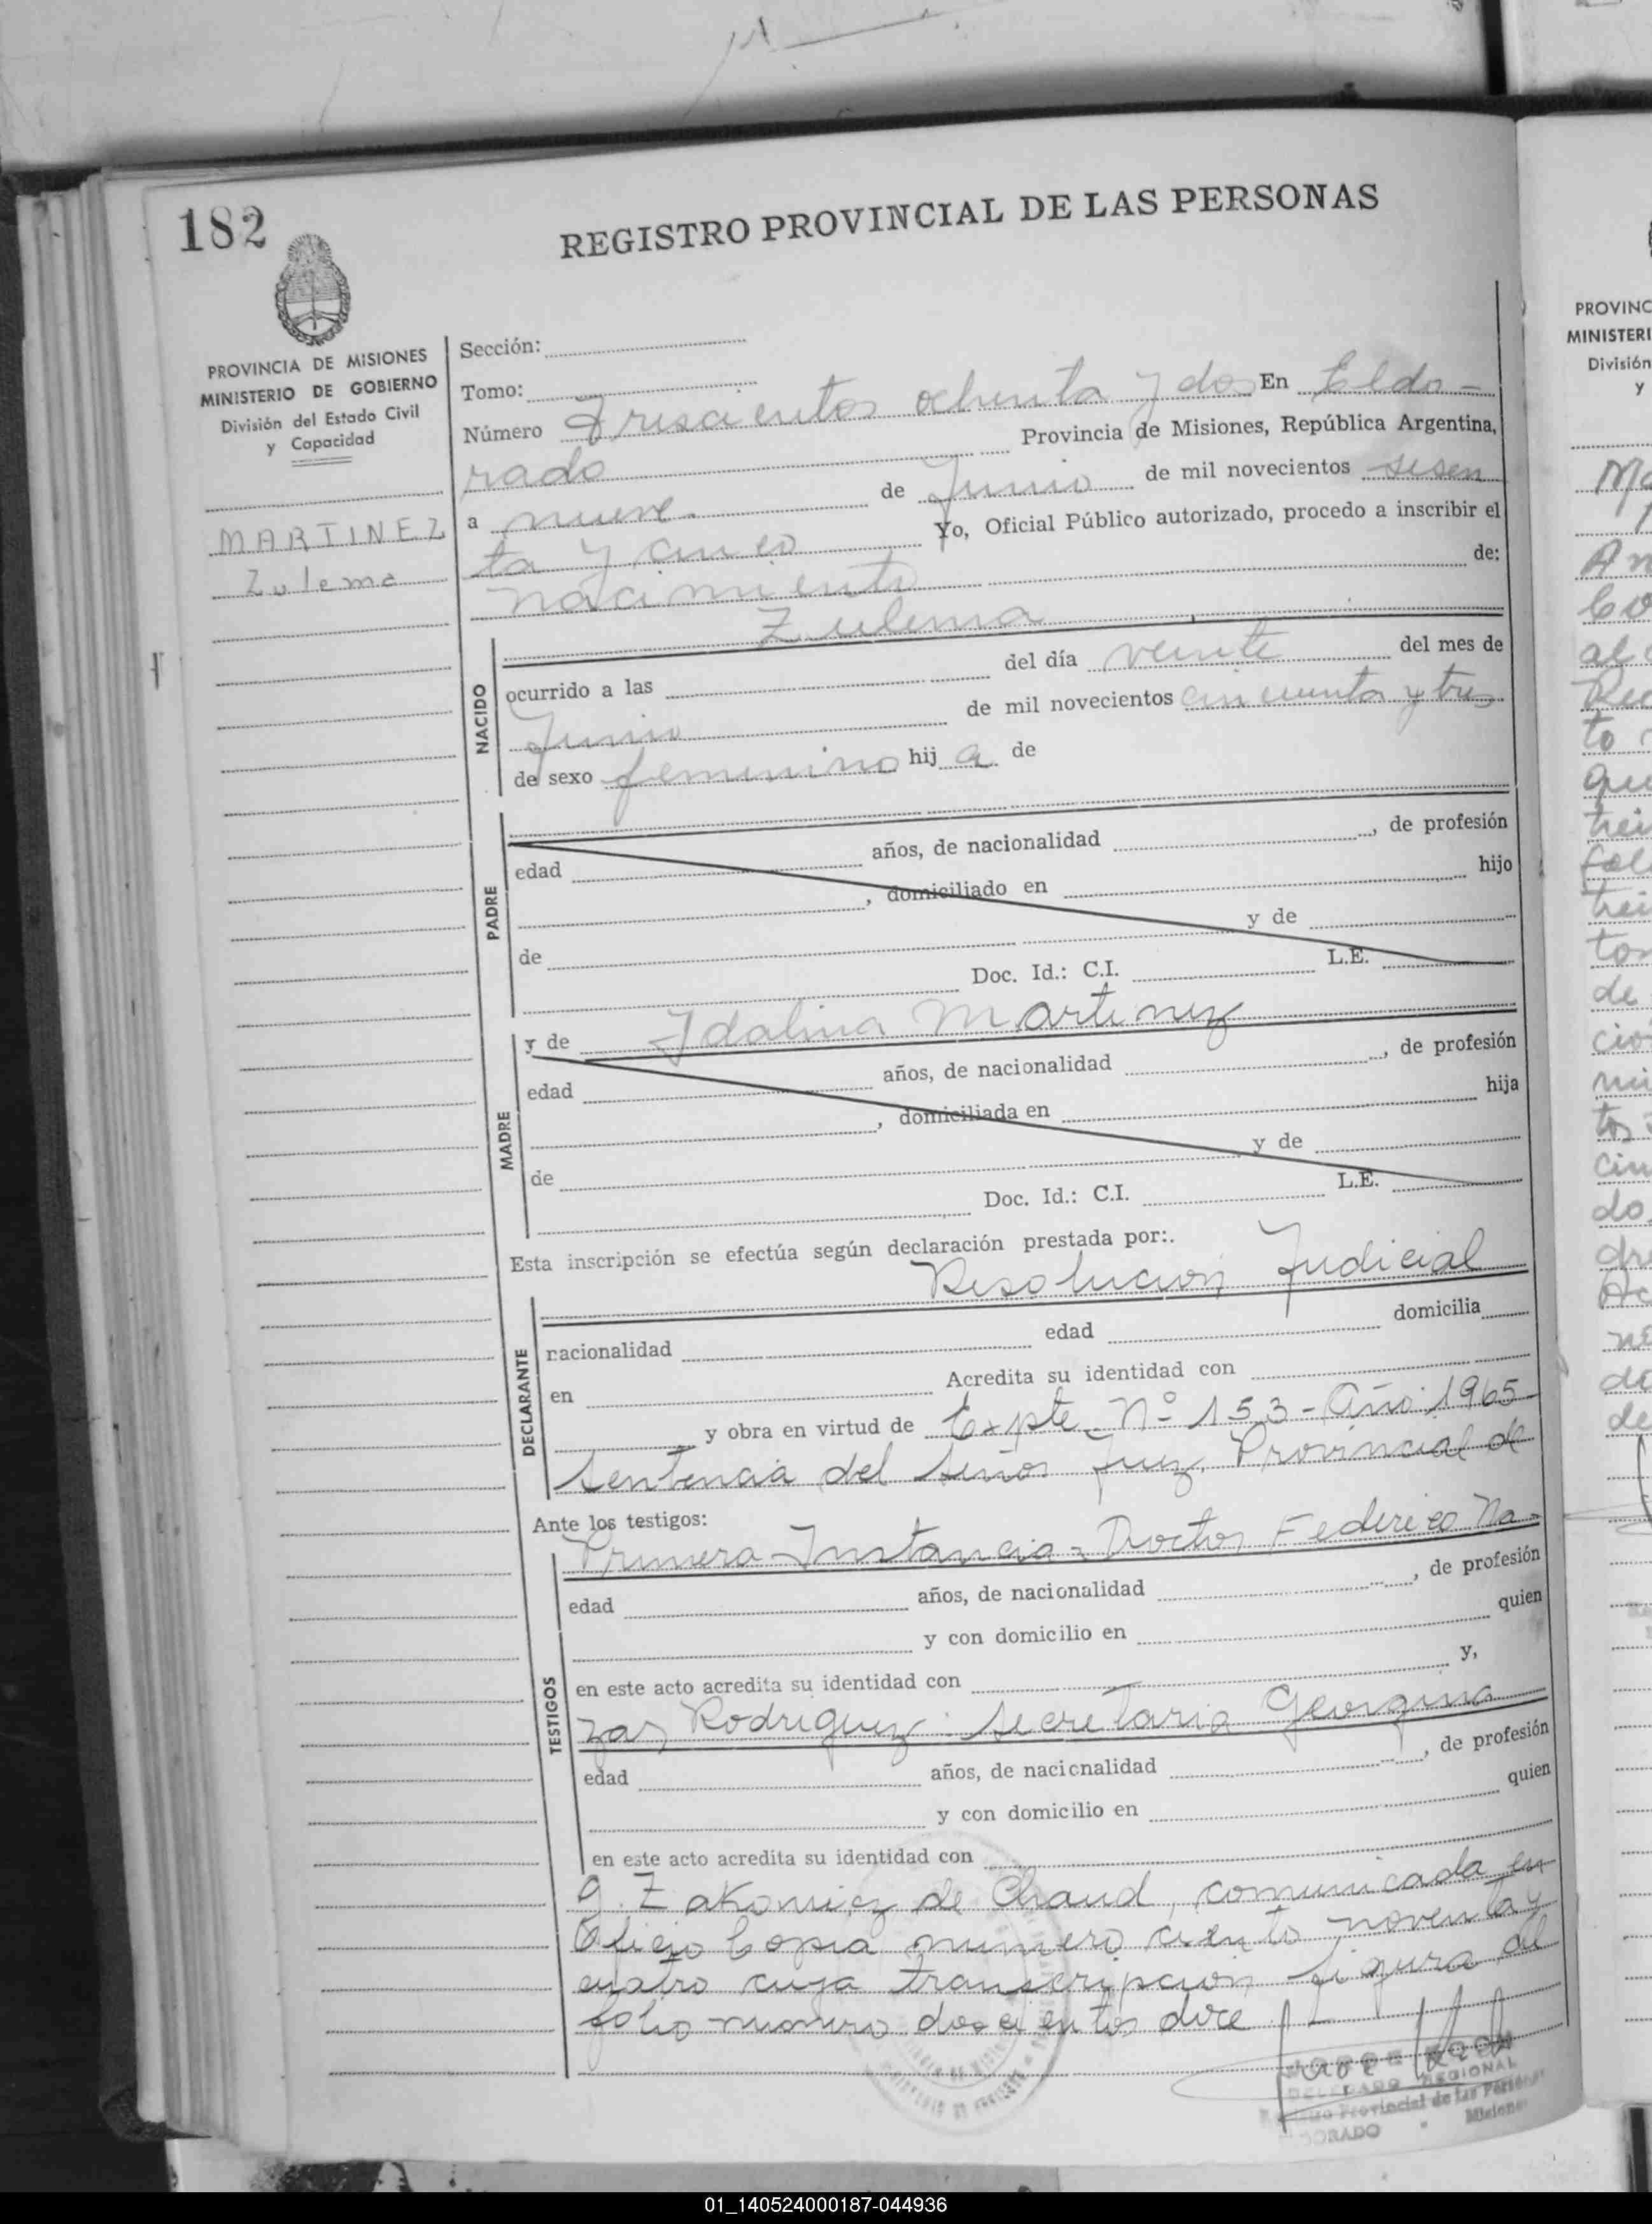 182
REGISTRO PROVINCIAL DE LAS PERSONAS
PROVINCIA DE MISIONES
MINISTERIO DE GOBIERNO
División del Estado Civil
y Capacidad
MARTINEZ
Zulema
Sección:
Tomo:
Número Trescientos ochenta y dos En Eldo-
rado Provincia de Misiones, República Argentina,
a nueve. de Junio de mil novecientos sesen
ta y cinco Yo, Oficial Público autorizado, procedo a inscribir el
nacimiento de:
Zulema
NACIDO
ocurrido a las del día veinte del mes de
Junio de mil novecientos cincuenta y tres
de sexo femenino hij a de
PADRE
edad años, de nacionalidad , de profesión
, domiciliado en hijo
de y de
Doc. Id.: C.I. L.E.
MADRE
y de Idalina Martinez
edad años, de nacionalidad , de profesión
, domiciliada en hija
de y de
Doc. Id.: C.I. L.E.
Esta inscripción se efectúa según declaración prestada por:.
Resolucion Judicial
DECLARANTE
nacionalidad edad domicilia
en Acredita su identidad con
y obra en virtud de Expte. Nº 153 - Año 1965
sentencia del señor Juez Provincial de
Ante los testigos:
Primera Instancia - Doctor Federico Na-
TESTIGOS
edad años, de nacionalidad , de profesión
y con domicilio en quien
en este acto acredita su identidad con y,
zar Rodriguez secretaria Georgina
edad años, de nacionalidad , de profesión
y con domicilio en quien
en este acto acredita su identidad con
g. Zakomicz de Chaud, comunicada en
Oficio Copia numero ciento noventa y
cuatro cuya transcripcion figura al
folio numero doscientos doce
JORGE
DELEGADO REGIONAL
Registro Provincial de las Personas
DORADO - Misiones
PROVINC
MINISTERI
División
y
01_140524000187-044936